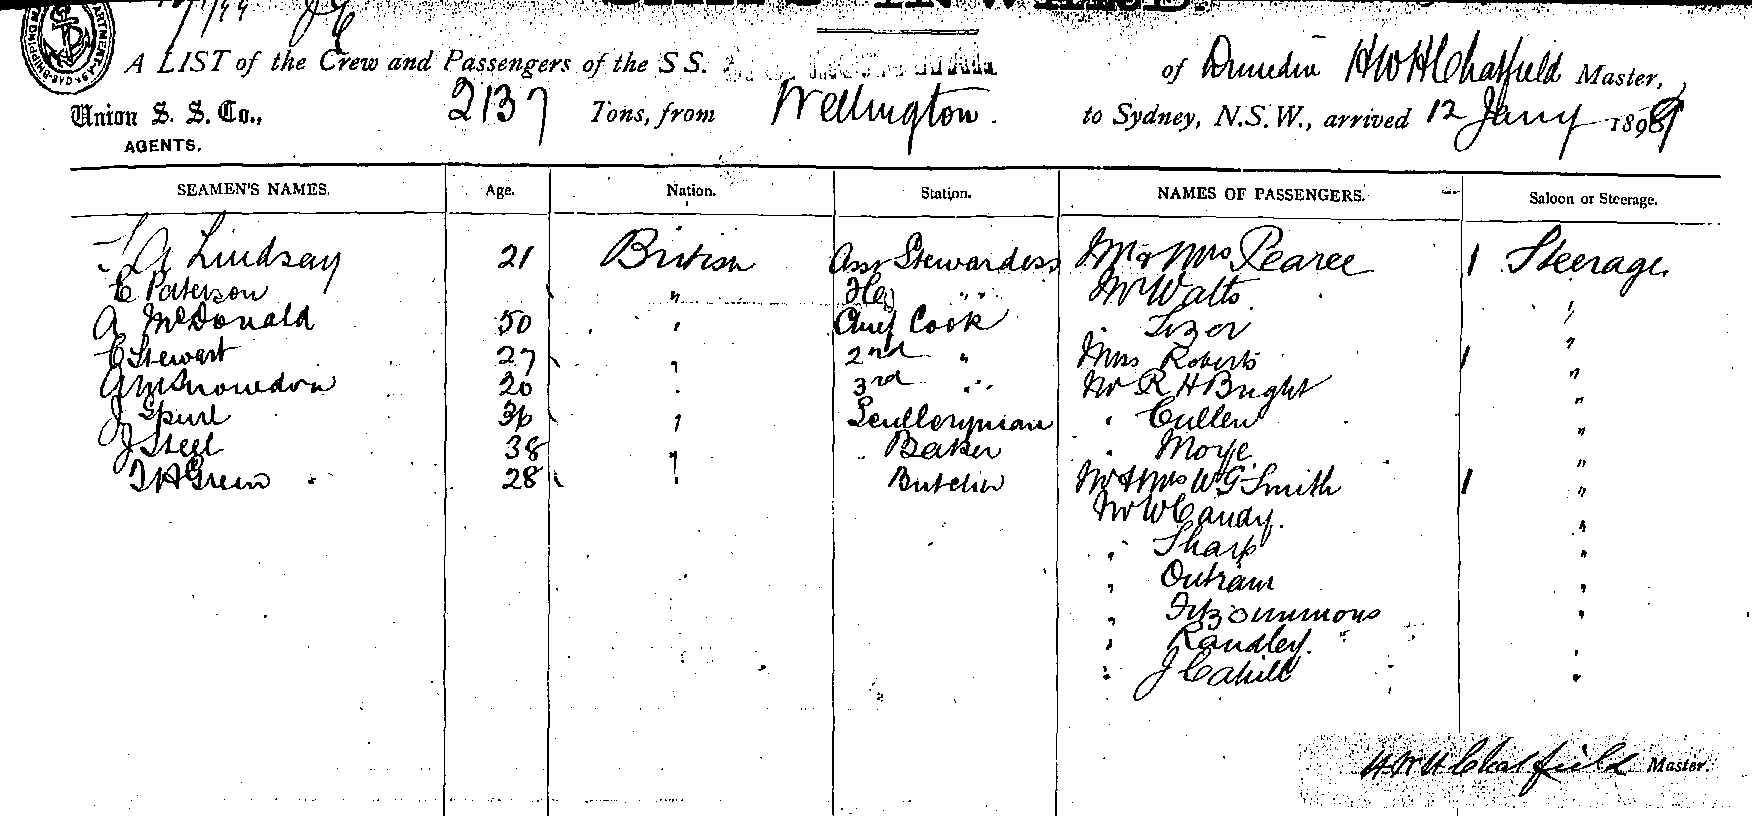 A LIST of the Crew and Passengers of the SS. of Dunedin H W H Chatfield Master,
Union S. S. Co., 2137 Tons, from Wellington. to Sydney, N.S.W., arrived 12 Jany 1899
AGENTS.
SEAMEN'S NAMES. Age. Nation. Station. NAMES OF PASSENGERS. Saloon or Steerage.
A Lindsay 21 British Asst Stewardess Mr & Mrs Pearce 1 Steerage.
E Paterson " " Mr Watts "
A McDonald 50 " Chief Cook " Lizor "
C Stewart 27 " 2nd " Mrs Roberts 1 "
A M Snowdon 20 " 3rd " Mr R H Bright "
J Spurl 36 " Sculleryman " Cullen "
J Steel 38 " Baker " Moye "
T H Green 28 " Butcher Mr & Mrs W G Smith 1 "
Mr W Candy. "
" Sharp "
" Outram "
" Fitzsimmons "
" Randley. "
" J Cahill "
H W H Chatfield Master.